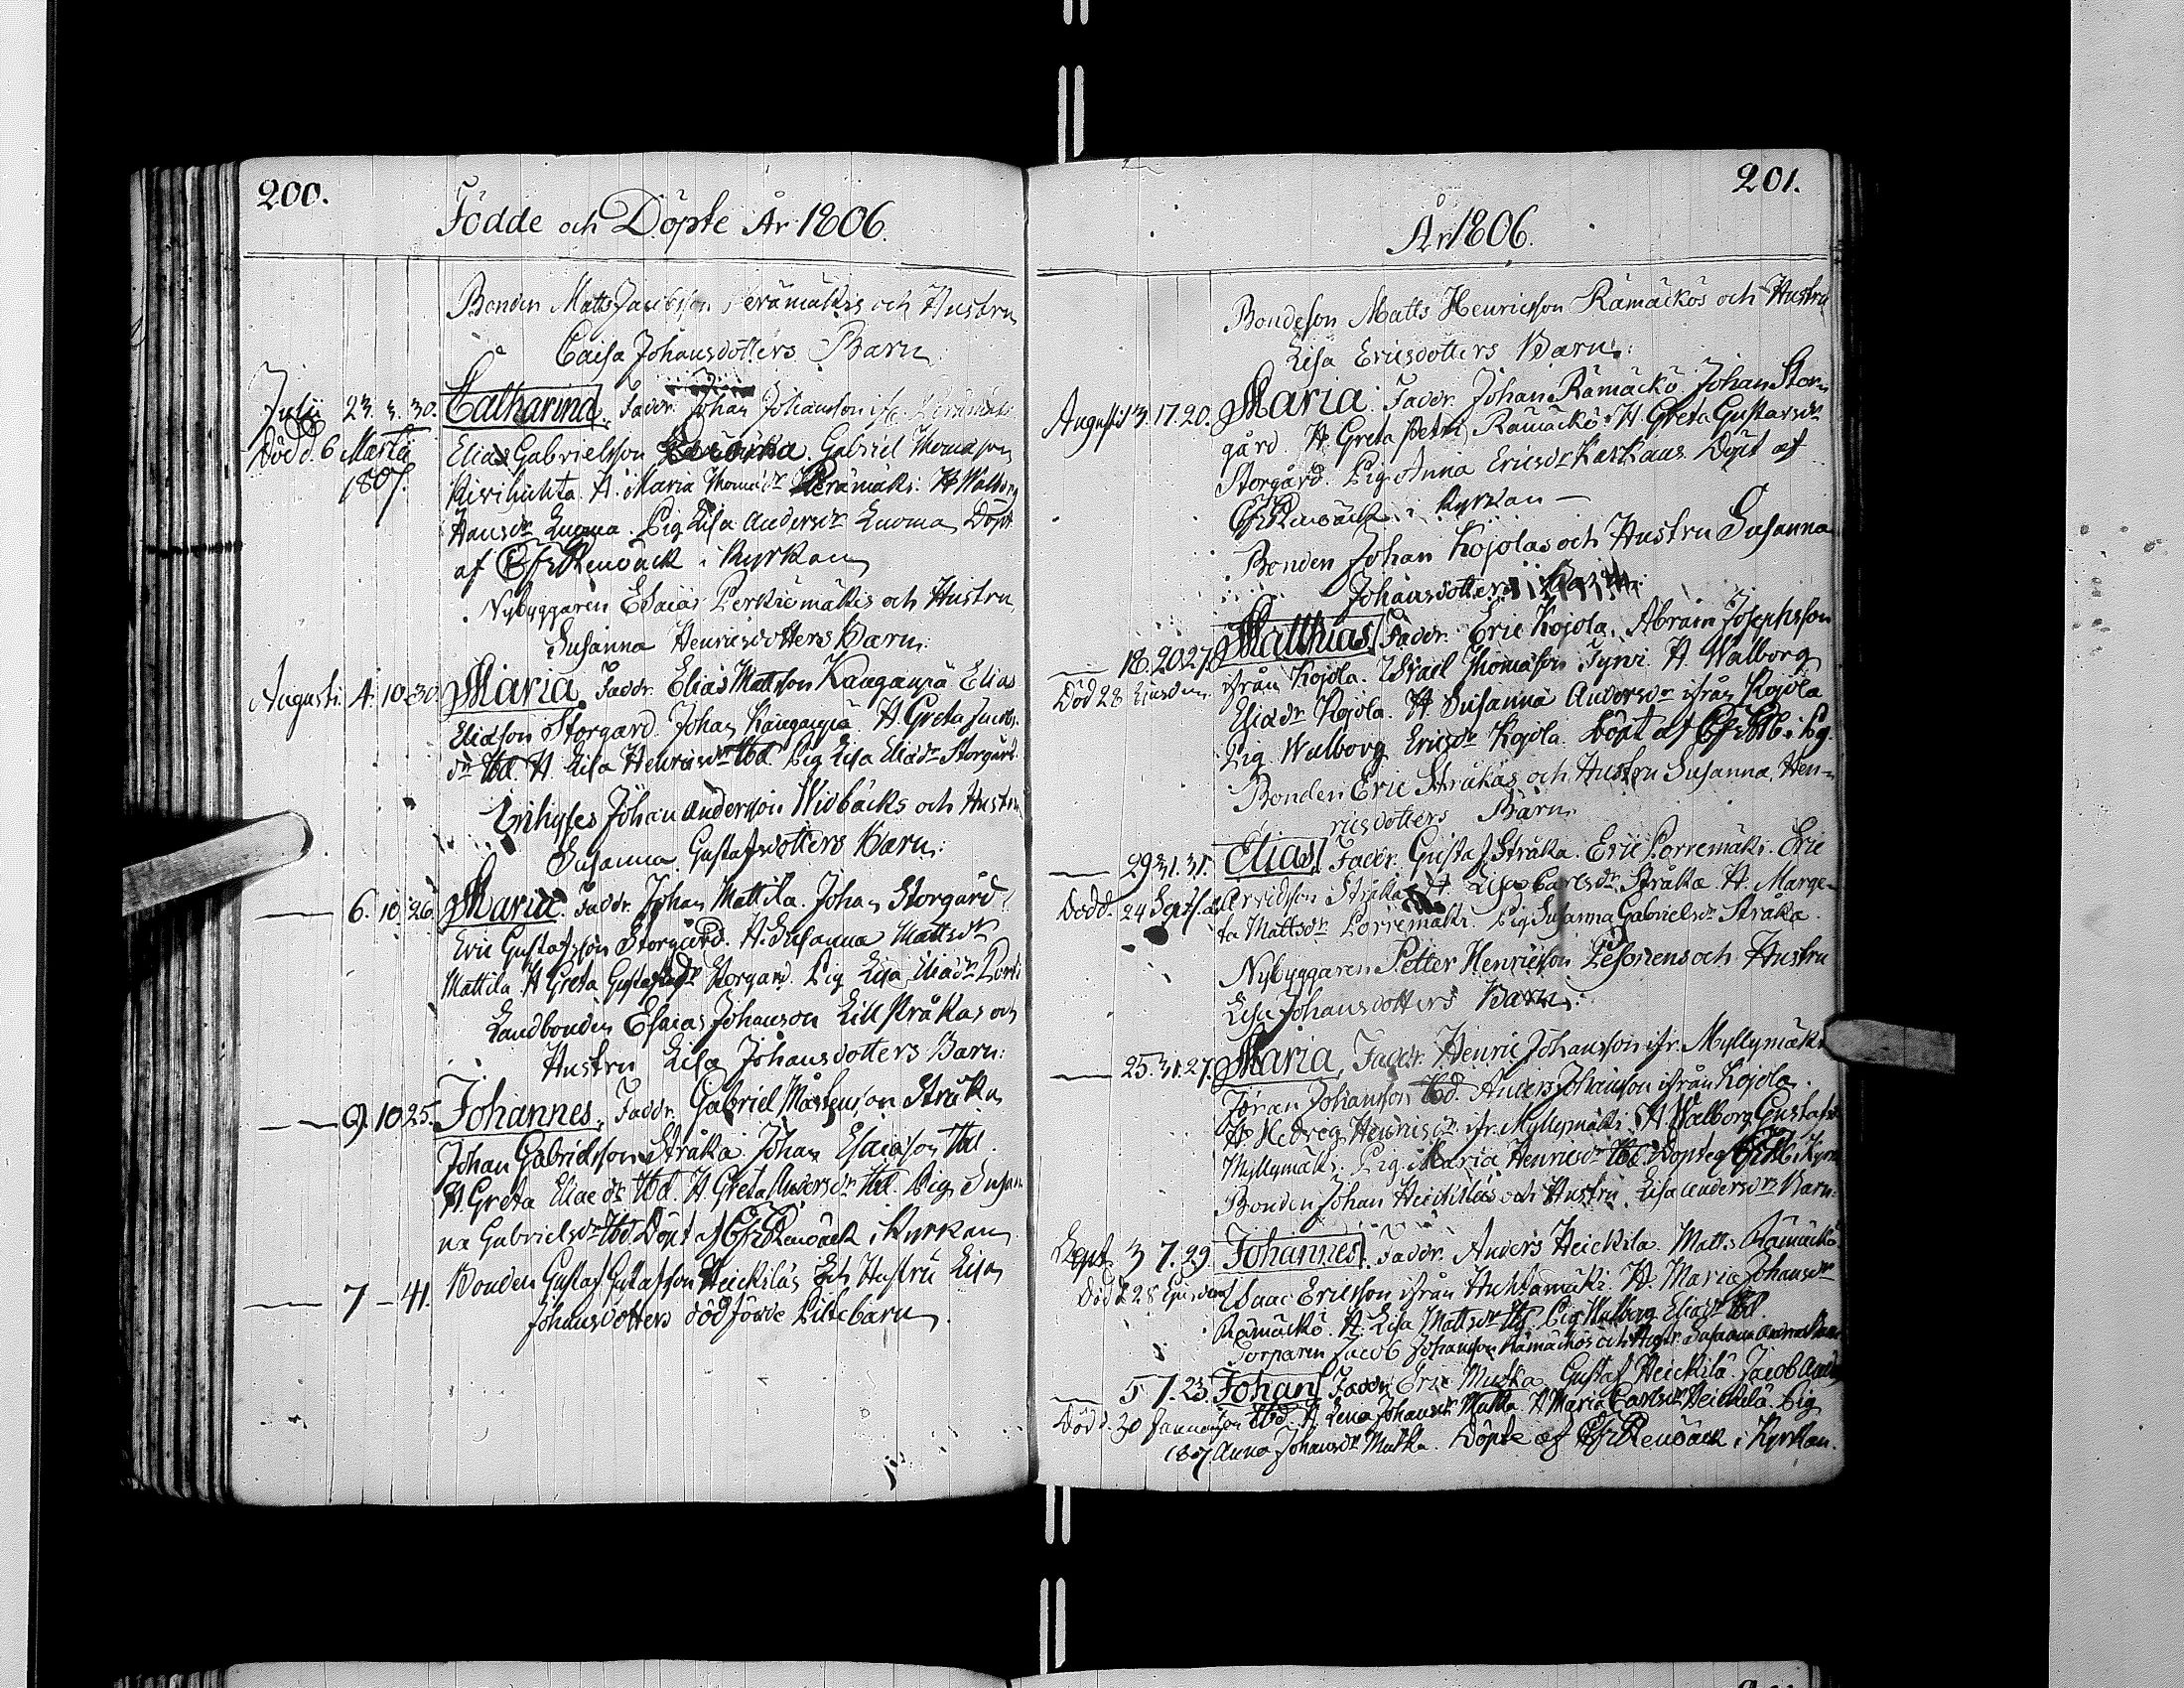 200.
Födde och Döpte År 1806.
Bonden Matts Jacobsson Perämäkis och Hustru
Caisa Johansdotters Barn:
Julii 23. 3. 30. Catharina. Faddr. Johan Johansson ifr. Perämäki
Död d. 6 Martii Elias Gabrielsson Gabriel Thomasson
1807. Kivihuhta. H. Maria Thomædr Perämäki. H Walborg
Hansdr Luoma. Pig Lisa Andersdr Luoma Döpt
af Renbäck i Kyrkan
Nybyggaren Esaias Perkiömäkis och Hustru
Susanna Henricsdotters Barn:
Augusti. 4. 10. 30. Maria. Faddr. Elias Mattsson Kanganpä Elias
Eliasson Storgård. Johan Kanganpä. H. Greta Jacobs-
dr Ibd. H. Lisa Henricsdr Ibd. Pig Lisa Eliædr Storgård.
Inhyses Johan Andersson Widbäcks och Hustru
Susanna Gustafsdotters Barn:
— 6. 10. 26. Maria. Faddr. Johan Mattila. Johan Storgård
Eric Gustafsson Storgård. H. Susanna Mattsdr
Mattila. H Greta Gustafsdr Storgård. Pig Lisa Eliædr
Landbonden Esaias Johansson Lillstråkas och
Hustru Lisa Johansdotters Barn:
— 9. 10 25. Johannes. Faddr. Gabriel Mårtensson Stråka
Johan Gabrielsson Stråka. Johan Esaiasson Ibd.
H Greta Eliædr Ibd. H. Greta Andersdr Ibd. Pig Susan
na Gabrielsdr Ibd Döpt af Renbäck i Kyrkan
— 7 — 41. Bonden Gustaf Gustafsson Heickiläs och Hustru Lisa
Johansdotters dödfödde Pilltebarn.
201.
År 1806.
Bondeson Matts Henricsson Rämäckös och Hustru
Lisa Ericsdotters Barn:
Augusti 13. 17. 20. Maria. Faddr. Johan Rämäckö. Johan Stor-
gård. H. Greta Petri Rämäckö. H. Greta Gustafsdr
Storgård. Pig Anna Ericsdr Döpt af
Renbäck i Kyrkan —
Bonden Johan Kojolas och Hustru Susanna
Johansdotters Barn:
— 18. 20 27. Matthias. Faddr. Eric Kojola. Abram Josephsson
Död 28 Ejusdem. ifrån Kojola. Israel Thomasson H. Walborg
Eliædr Kojola. H. Susanna Andersdr ifrån Kojola
Pig Walborg Ericsdr Kojola. Döpt af
Bonden Eric Stråkas och Hustru Susanna Hen-
ricsdotters Barn
— 29 31. 31. Elias. Faddr. Gustaf Stråka. Eric Porremäki. Eric
Död d. 24 Sept. Arvidsson Stråka H. Lisa Carlsdr Stråka. H. Marge-
ta Mattsdr Porremäki. Pig Susanna Gabrielsdr Stråka.
Nybyggaren Petter Henricsson och Hustru
Lisa Johansdotters Barn:
— 25. 31. 27. Maria. Faddr. Henric Johansson ifr. Myllymäki
Jöran Johansson Ibd. Anders Johansson ifrån Kojola.
H. Hedvig Henricsdr ifr. Myllymäki. H Walborg Gustafsdr
Myllymäki. Pig Maria Henricsdr Ibd. Döpte af i Kyrk
Bonden Johan Heickiläs och Hustru Lisa Andersdrs Barn:
Sept. 3 7. 29. Johannes. Faddr. Anders Heickilä. Matts Rämäckö
Död d 28 Ejusdem Isaac Ericsson ifrån Huhtamäki. H. Maria Johansdr
Rämäckö. H. Lisa Mattsdr Ibd. Pig Walborg Eliædr Ibd.
Torparen Jacob Johansson Rämäckös och Hustr. Susanna
— 5 7. 23. Johan Faddr. Eric Mutka. Gustaf Heickilä. Jacob
Död d. 30 Ibd. H. Lena Johansdr Mutka. H Maria Carlsdr Heickilä. Pig
1807. Anna Johansdr Mutka. Döpte af Renbäck i Kyrkan.